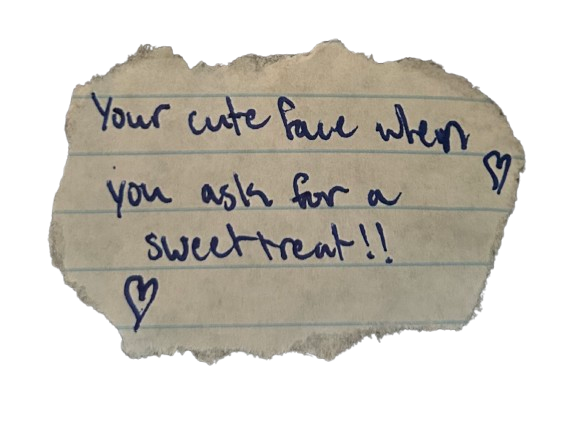 Your cute face when
you ask for a
sweet treat!!